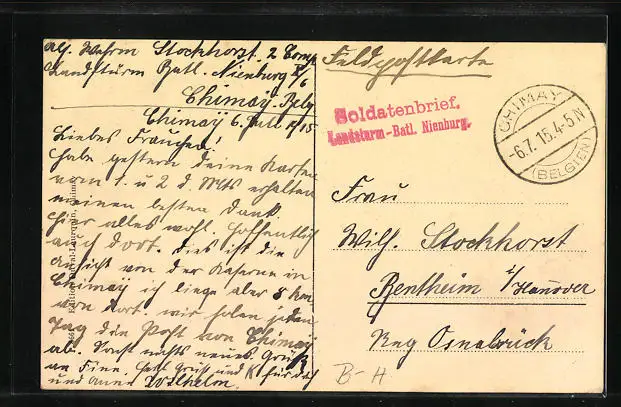 Wehrm Stockhorst. 2 Comp
Landsturm Batl. Nienburg X/6
Chimay Belg
Chimay 6. Juli 1915
Liebes Frauchen!
Habe gestern deine Karten
vom 1. u 2 d. Mts erhalten
meinen besten Dank.
Hier alles wohl. Hoffentlich
auch dort. Dies ist die
Ansicht von der Kaserne in
Chimay ich liege aber 8 km
von dort. wir holen jeden
Tag die Post von Chimay
ab. Sonst nichts neues Gruß
an Fine. Gruß und Kuß für dich
und Wilhelm.
Feldpostkarte
Soldatenbrief.
Landsturm-Batl. Nienburg.
CHIMAY
-6.7.15.4-5.N
(BELGIEN)
Frau
Wilh. Stockhorst
Bentheim i/Hannover
Reg Osnabrück
B-H